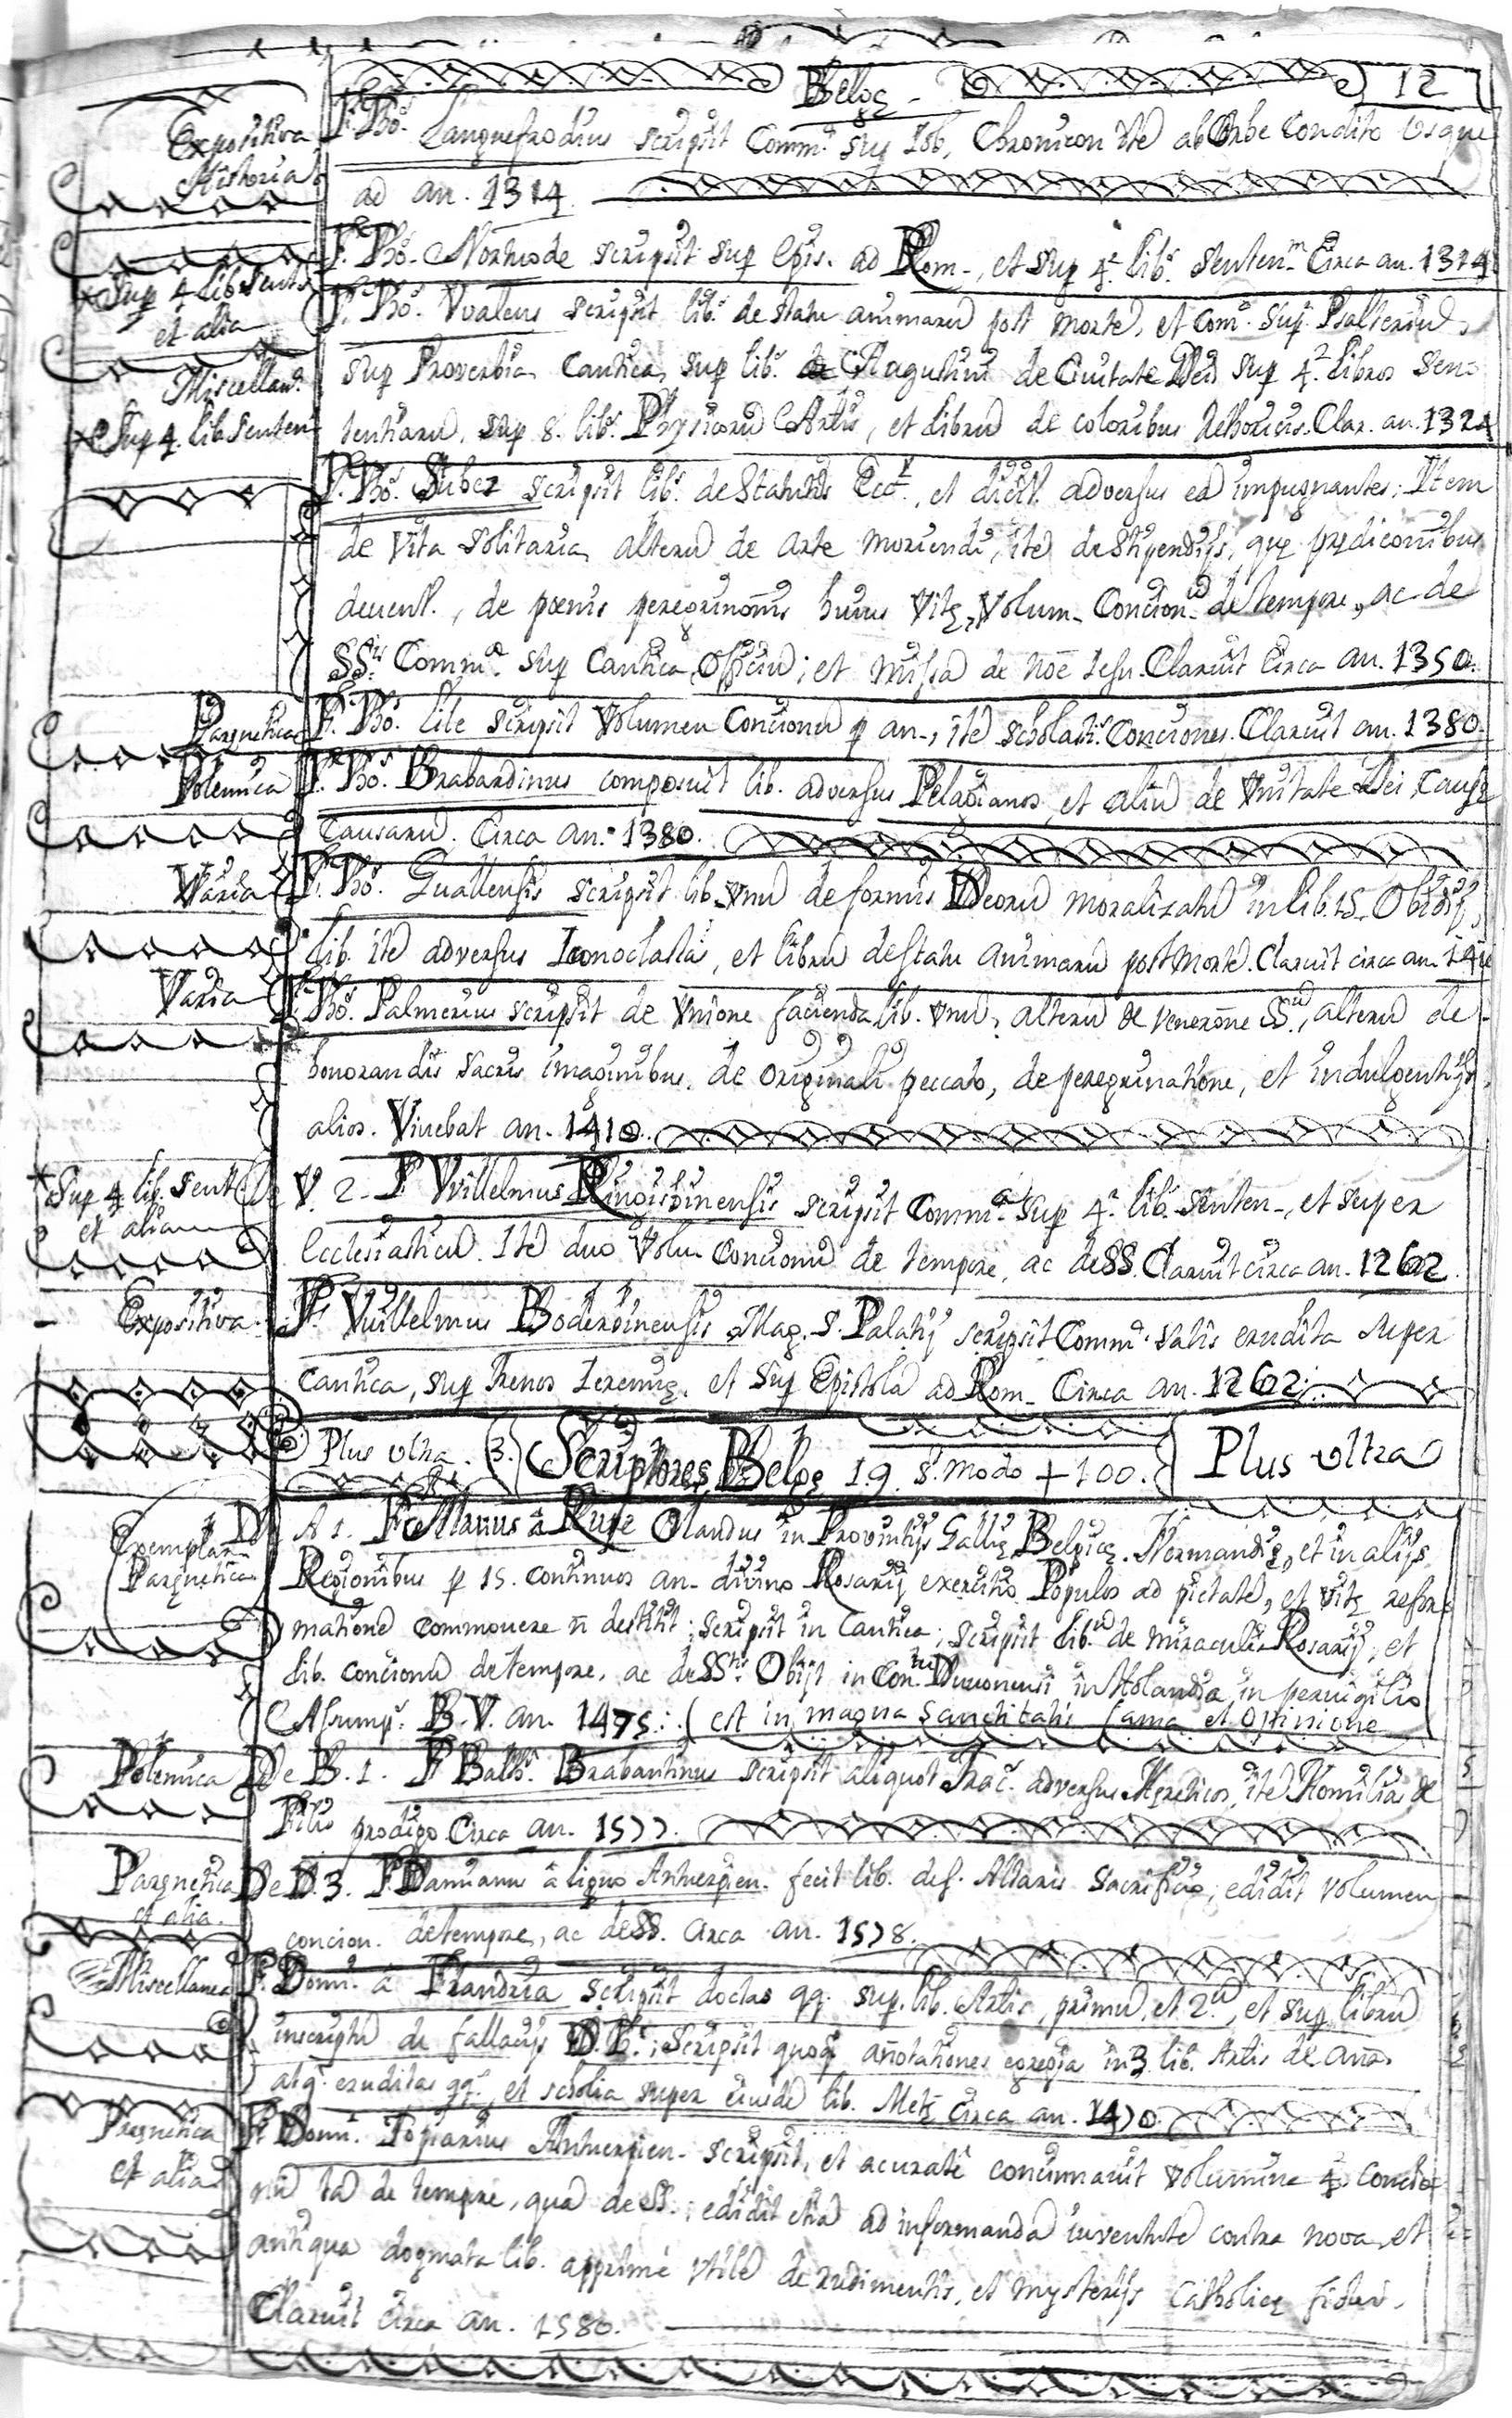 Belgę - 12
Expositiva
Historia
F. Tho. Languefrodius scripsit Comm. sup Iob, Chronicon ite ab Orbe condito usque
ad an. 1314
Sup 4 lib Sent
et alia
F. Tho. Northuode scripsit sup Epis. ad Rom-, et sup 4. lib. senten- Circa an. 1314
Miscellan.
Sup 4. lib Senten
F. Tho. Vvaleus scripsit lib. de statu animaru post morte, et Com. sup Psalteriu,
sup Proverbia, Cantica, sup lib. Augustini de Civitate Dei sup 4. libros Sen-
tentiaru, sup 8. lib. Physicoru Artis, et libru de coloribus rethoricis. Clar. an. 1324
F. Tho. Suber scripsit lib. de Statutis Ecc., et adversus ea impugnantes; Item
de Vita solitaria, alteru de Arte moriendi, ite de stipendijs, quę prędiconibus
deuent., de poenis peregrinonis huius Vitę, Volum- Concion- de tempore, ac de
SS. Comm. sup Cantica, Officiu; et missa de noe Iesu. Claruit Circa an. 1350.
Parænetica
F. Tho. lile scripsit Volumen Concionu p an-, ite scholasti. Conciones. Claruit an. 1380.
Polemica
F. Tho. Brabardinus composuit lib. adversus Pelagianos, et aliu de Unitate Dei, Causa
causaru. Circa an. 1380.
Varia
F. Tho. Guallensis scripsit lib. Vnu de formis Deoru moralizatu in lib. 15. Obidij,
lib. ite adversus Iconoclasta, et libru de statu animaru post morte. Claruit circa an.
Varia
F. Tho. Palmerius scripsit de Vnione facienda lib. vnu, alteru de venerone SS., alteru de
honorandis sacris imaginibus, de originali peccato, de peregrinatione, et indulgentijs,
alios. Vivebat an. 1410.
Sup 4 lib. Sent
et alia
De V. 2- F. Vvillelmus scripsit Comm. sup 4. lib. senten-, et super
Ecclesiasticu. Ite duo Volu- Concionu de tempore, ac de SS. Claruit circa an. 1262.
Expositiva
F. Vuillelmus Mag. S. Palatij scripsit Comm. satis erudita super
Cantica, sup Trenos Ieremię, et sup Epistola ad Rom- Circa an. 1262.
Plus ultra. (3.) Scriptores Belgę 19. s. modo + 100. Plus ultra
Exemplar-
Parænetica
De A 1. F. Alanus a Rupe Olandus in Provintijs Gallię, Belgicę, Normandię, et in alijs
Regionibus p 15. continuos an- divino Rosarij exercitio Populos ad pietate, et vitę refor-
matione commouere n destitit; scripsit in Cantica; scripsit lib. de miraculis Rosarij, et
lib. concionu de tempore, ac de SS. Obijt in Con. in Holandia, in pervigilio
Assump. B. V. an. 1475: (est in magna Sanctitatis fama et Opinione
Polemica
De B. 1. F. Balth. Brabantinus scripsit aliquot Trac. adversus Hęreticos, ite Homilias de
Filio prodigo. Circa an. 1577.
Parænetica
et alia.
De D. 3. F. Damianus a ligno Antuerpien. fecit lib. de s. Altaris Sacrificio; edidit volumen
concion. de tempore, ac de SS. circa an. 1578.
Miscellanea
F. Domi. a Flandria scripsit doctas qq. sup. lib. Artis, primu, et 2., et sup libru
inscriptu de fallacijs D. T.; Scripsit quoq annotationes egregia in 3. lib. Artis de Ana
atq eruditas qq., et scholia super eiusde lib. Metę circa an. 1470.
Parænetica
et alia
F. Domi. Topiarius Antuerpien- scripsit, et acurate concinnavit volumina 4. concio-
nu ta de tempore, qua de SS.; edidit etia ad informanda iuventute contra nova, et
antiqua dogmata lib. apprime utile de rudimentis, et mysterijs Catholicę fidei.
Claruit circa an. 1580.